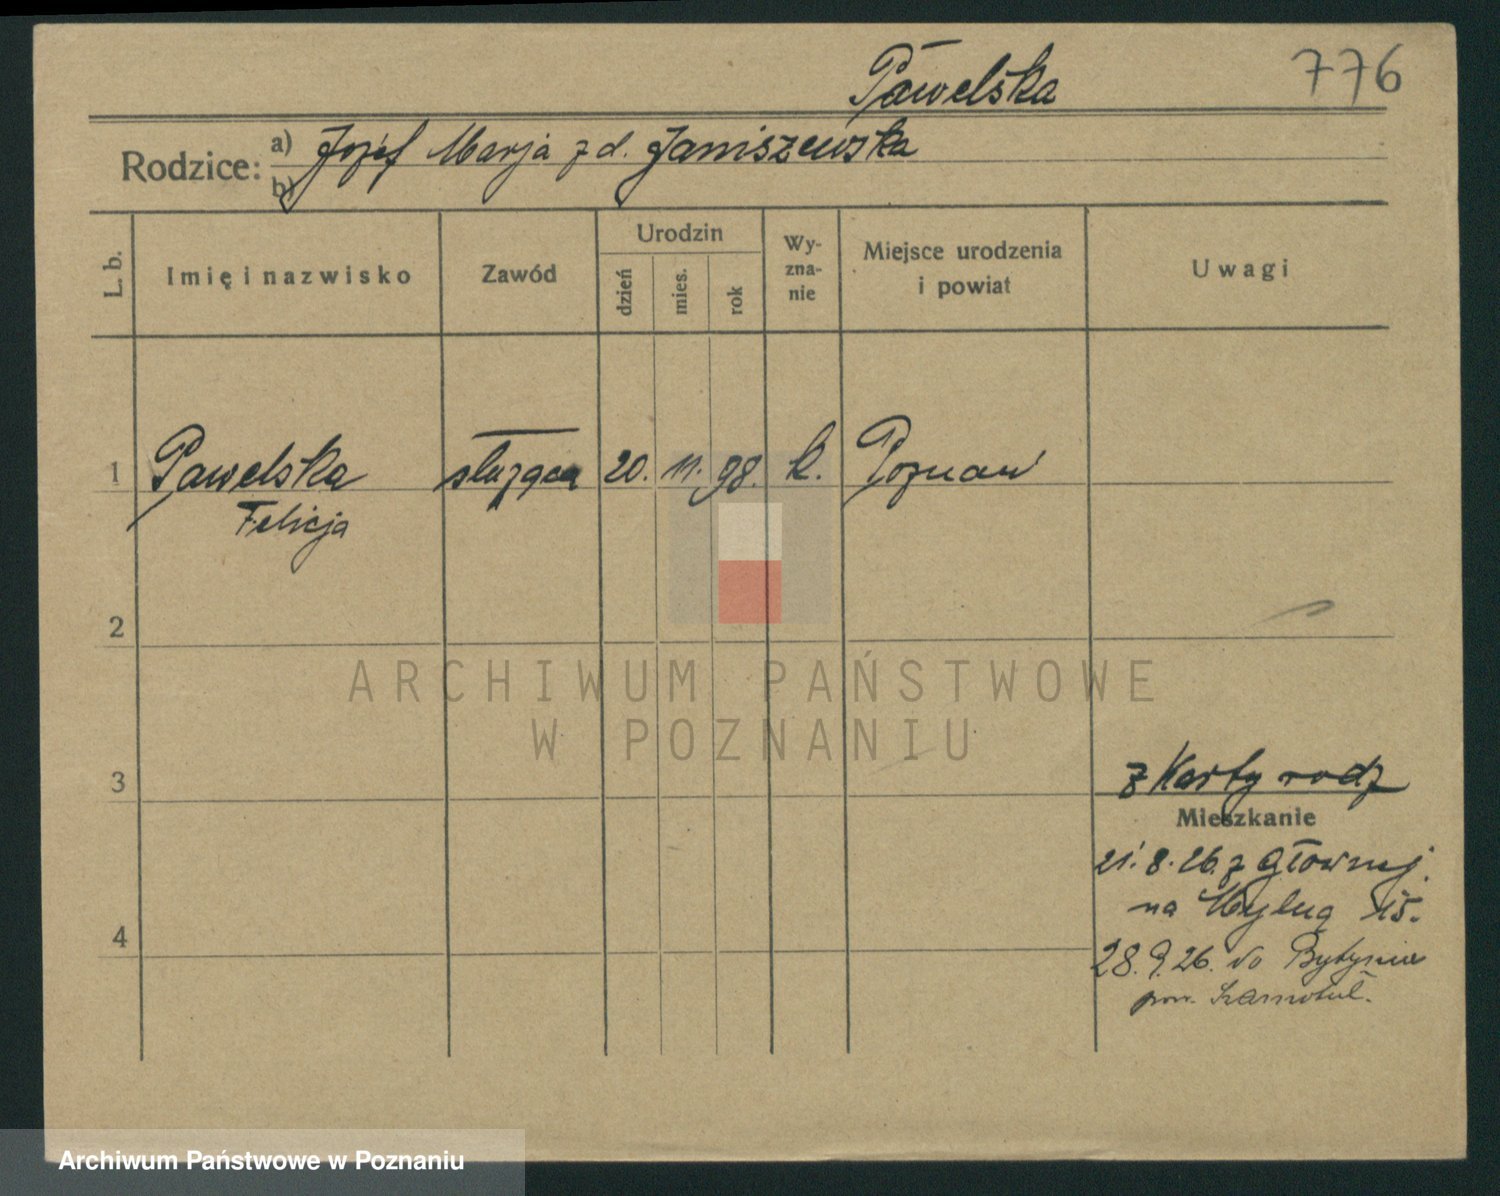 Pawelska 776
Rodzice: a) Józef Marja z d. Janiszewska
b)
L. b. Imię i nazwisko Zawód Urodzin dzień mies. rok Wy-zna-nie Miejsce urodzenia i powiat Uwagi
1 Pawelska służąca 20. 11. 98. k. Poznań
Felicja
2
ARCHIWUM PAŃSTWOWE
W POZNANIU
3 z Karty rodz
Mieszkanie
21.8.26. z Głownej.
na 15.
4
28.9.26. do Bytynia
pow. Szamotuł.
Archiwum Państwowe w Poznaniu